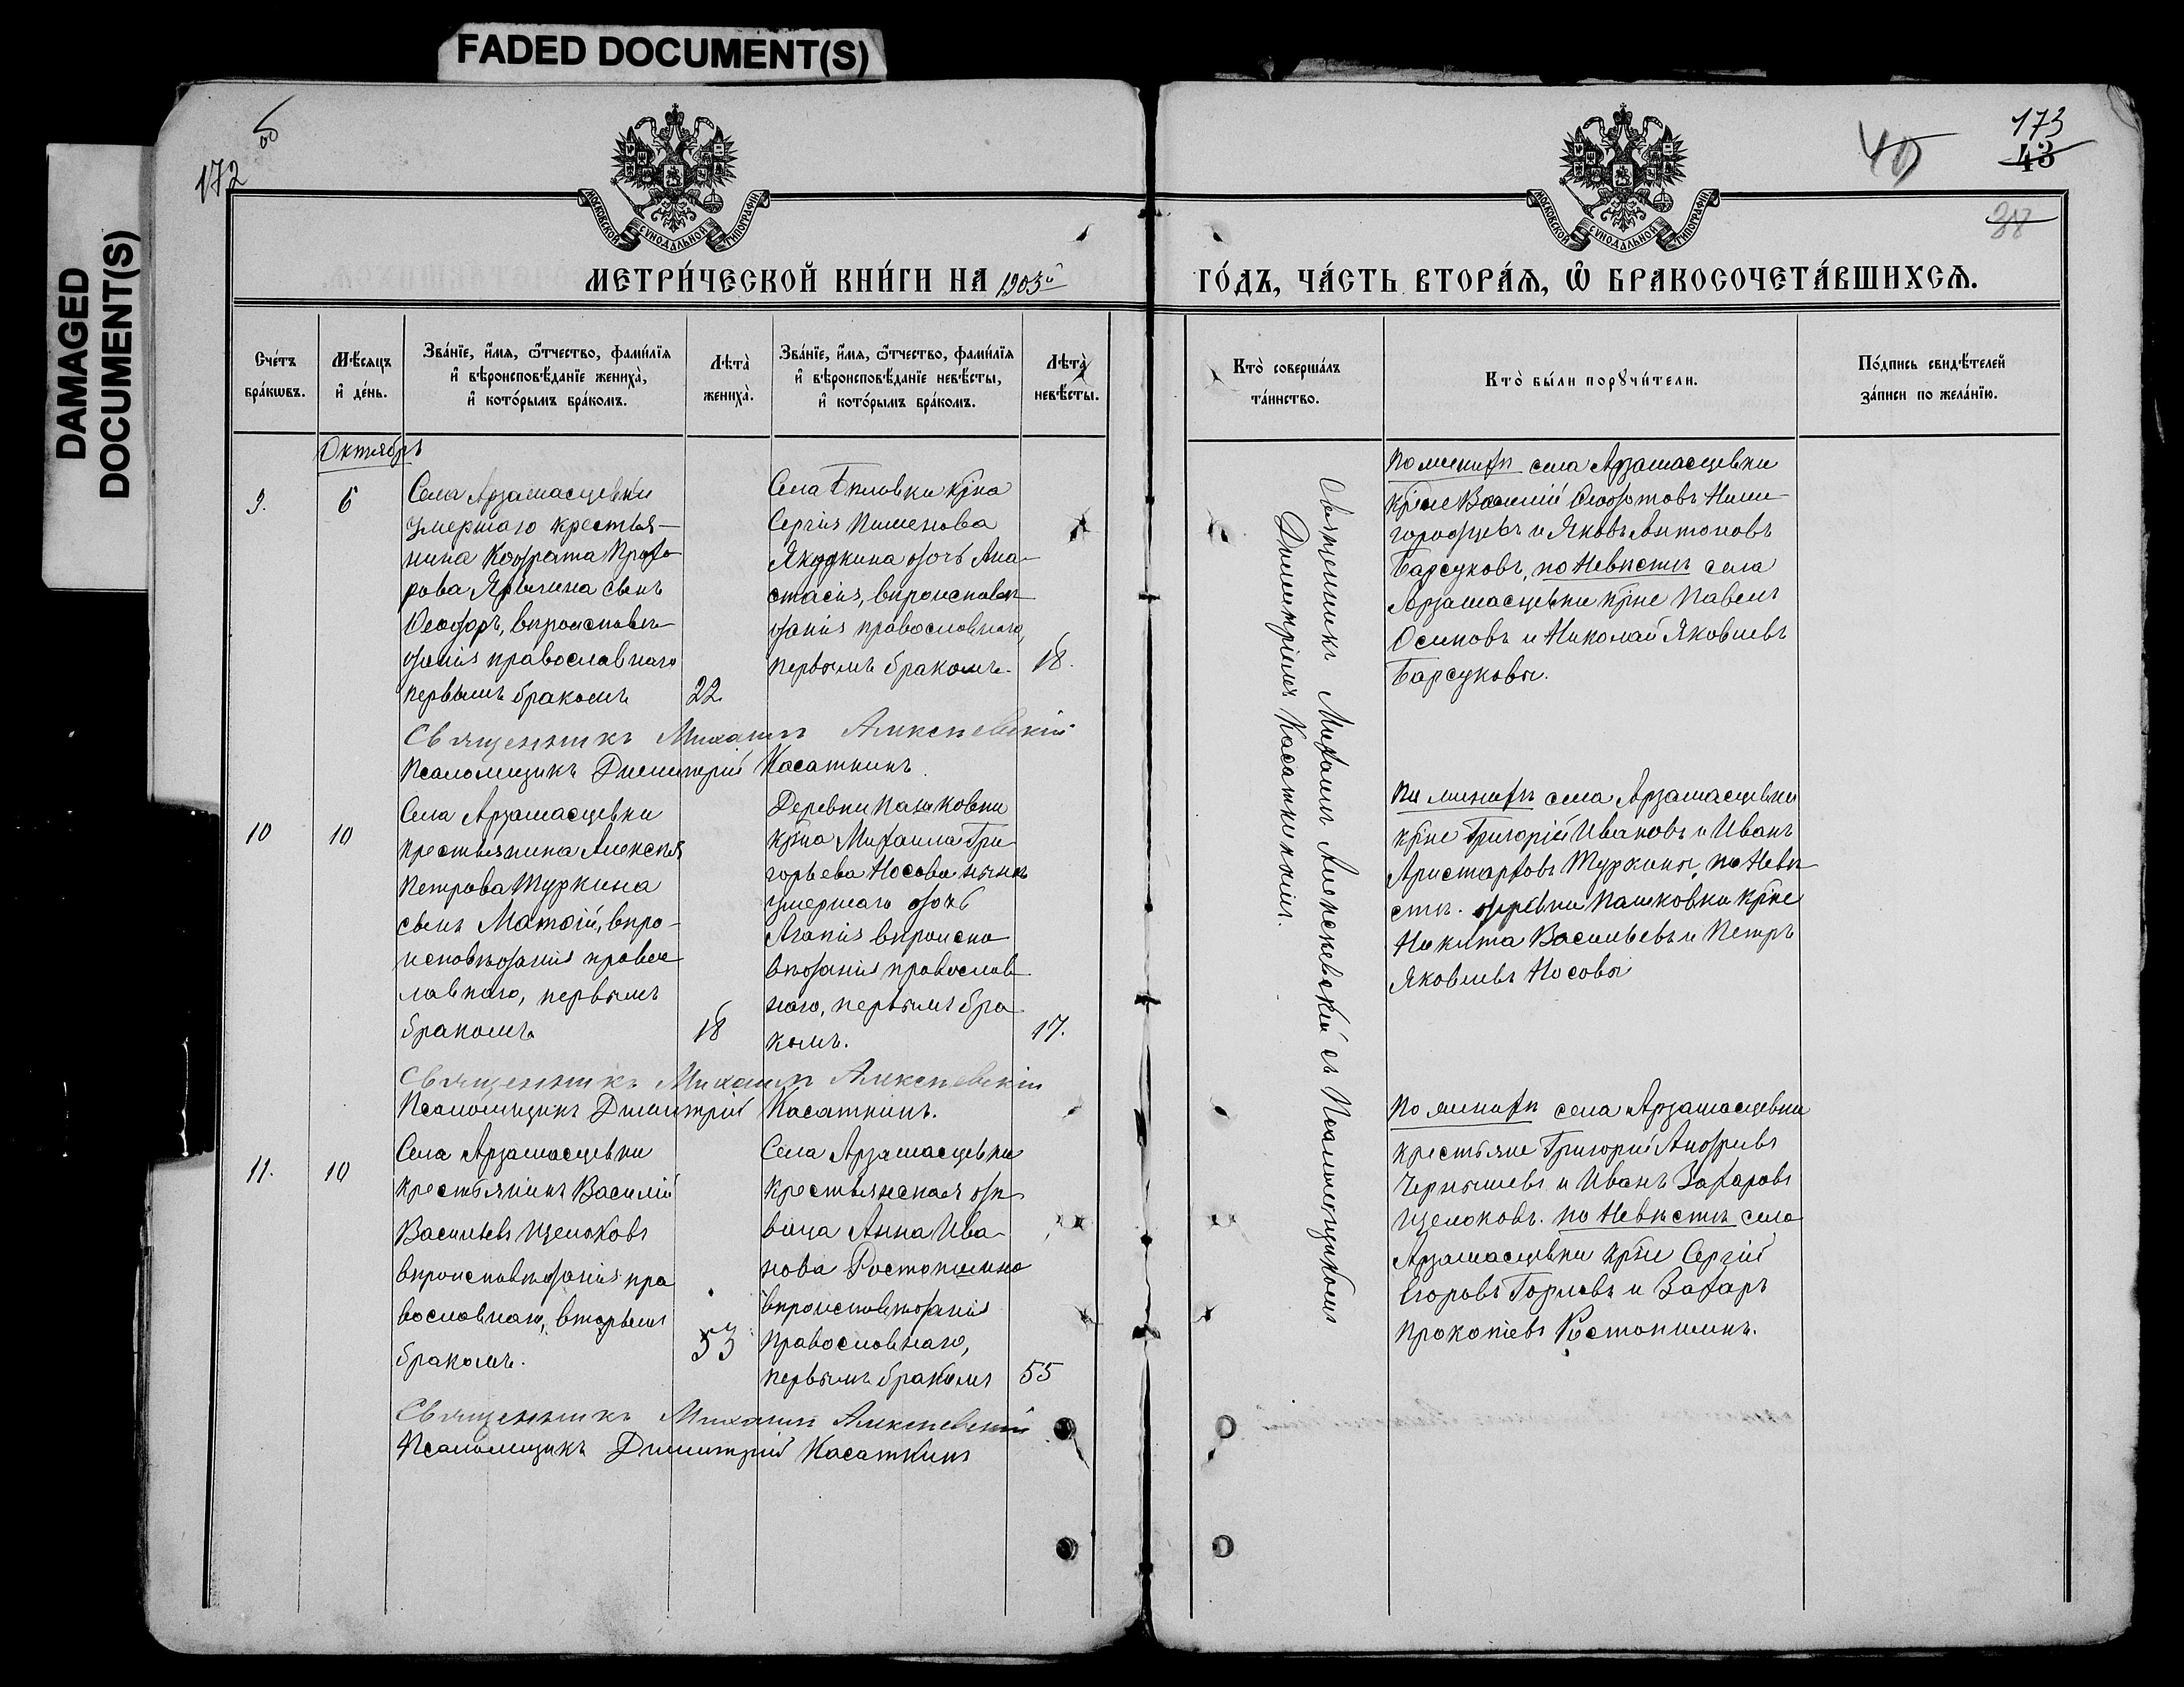 FADED DOCUMENT(S)
DAMAGED
DOCUMENT(S)
172
173
43
40
38
МОСКОВСКОЙ СѴНОДАЛЬНОЙ ТИПОГРАФІИ
МОСКОВСКОЙ СѴНОДАЛЬНОЙ ТИПОГРАФІИ
МЕТРИ́ЧЕСКОЙ КНИ́ГИ НА 1903й
ГО́ДЪ, ЧА́СТЬ ВТОРА́Ѧ, Ѽ БРАКОСОЧЕТА́ВШИХСѦ.
Сче́тъ бра́кѡвъ.
Мѣ́сяцъ и҆ де́нь.
Зва́нїе, и҆́мя, ѻ҆́тчество, фами́лїя
и҆ вѣроисповѣ́данїе жениха̀,
и҆ кото́рымъ бра́комъ.
Лѣта̀ жениха̀.
Зва́нїе, и҆́мя, ѻ҆́тчество, фами́лїя
и҆ вѣроисповѣ́данїе невѣ́сты,
и҆ кото́рымъ бра́комъ.
Лѣта̀ невѣ́сты.
Кто̀ соверша́лъ
та́инство.
Кто̀ бы́ли порꙋчи́тели.
По́дпись свидѣ́телей
за́писи по жела́нїю.
Октябрь
9.
6
Села Арзамасцевки
умершаго крестья-
нина Кодрата Прохо
рова Ярыгина сынъ
Ѳеодоръ, вѣроисповѣ-
данія православнаго
первымъ бракомъ
22
Села Бѣловки кр̃на
Сергія Пименова
Якушкина дочь Ана-
стасія, вѣроисповѣ
данія православнаго,
первымъ бракомъ.
18.
Священникъ Михаилъ Алексѣевскій
Псаломщикъ Димитрій Касаткинъ.
По женихѣ села Арзамасцевки
кр̃не Василій Ѳеодотовъ Ниже-
городцевъ и Яковъ Антоновъ
Барсуковъ, по Невѣстѣ села
Арзамасцевки кр̃не Павелъ
Осиповъ и Николай Яковлевъ
Барсуковы.
10
10
Села Арзамасцевки
крестьянина Алексѣя
Петрова Туркина
сынъ Матѳій, вѣро-
исповѣданія правос
лавнаго, первымъ
бракомъ
18
Деревни Пашковки
кр̃на Михаила Гри
горьева Носова нынѣ
умершаго дочь
Агапія вѣроиспо
вѣданія православ
наго, первымъ бра
комъ.
17.
Священникъ Михаилъ Алексѣевскій
Псаломщикъ Димитрій Касаткинъ.
По женихѣ села Арзамасцевки
кр̃не Григорій Ивановъ и Иванъ
Аристарховъ Туркины, по Невѣ
стѣ. деревни Пашковки кр̃не
Никита Васильевъ и Петръ
Яковлевъ Носовы
11.
10
Села Арзамасцевки
крестьянинъ Василій
Васильевъ Щелоковъ
вѣроисповѣданія пра
вославнаго, вторымъ
бракомъ.
53
Села Арзамасцевки
крестьянская дѣ
вица Анна Ива
нова Ростопшина
вѣроисповѣданія
православнаго,
первымъ бракомъ
55
Священникъ Михаилъ Алексѣевскій
Псаломщикъ Димитрій Касаткинъ
По женихѣ села Арзамасцевки
крестьяне Григорій Андреевъ
Чернышевъ и Иванъ Захаровъ
Щелоковъ. по Невѣстѣ села
Арзамасцевки кр̃не Сергій
Егоровъ Горловъ и Захаръ
Прокопіевъ Ростопшинъ.
Священникъ Михаилъ Алексѣевскій съ Псаломщикомъ
Димитріемъ Касаткинымъ.